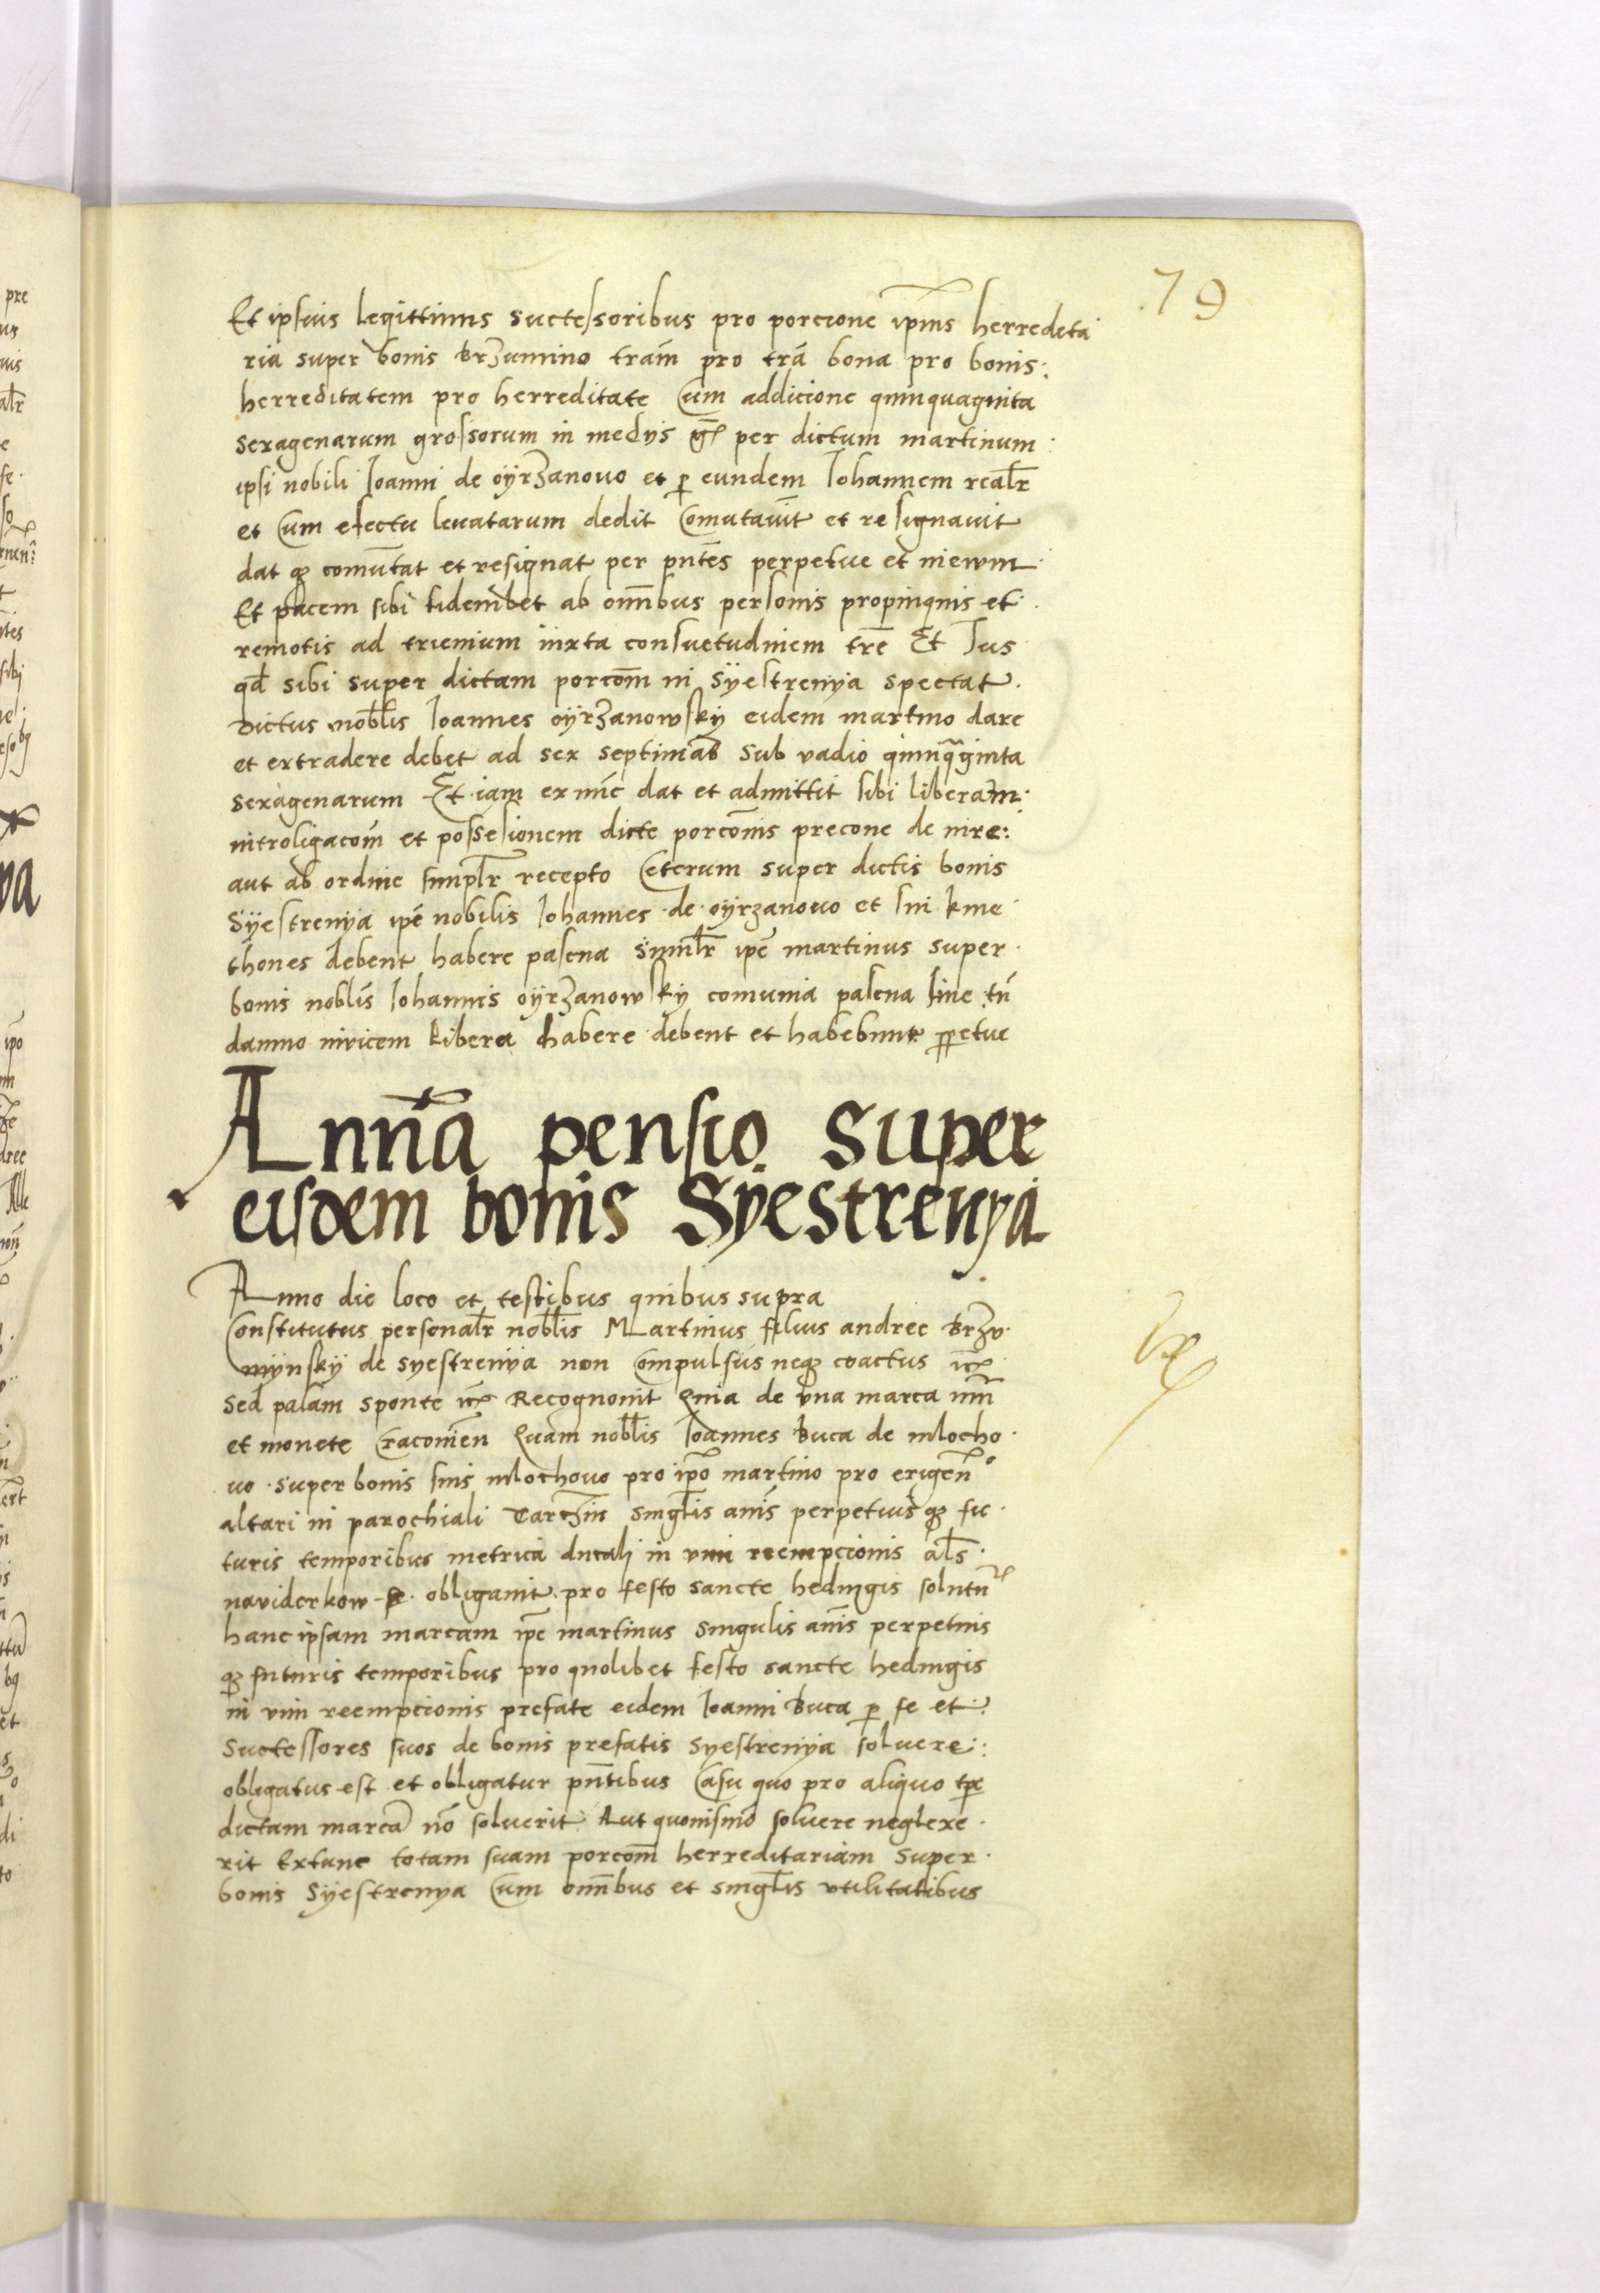 79
Et ipsius legittimis successoribus pro porcione ip̄ius herredeta
ria super bonis Brzumino trām pro trā bona pro bonis
herreditatem pro herreditate Cum addicione quinquaginta
sexagenarum grossorum in medys per dictum martinum
ipsi nobili Ioanni de oÿrzanovo et ꝑ eundem Iohannem realr̄
et Cum efectu levatarum dedit Comutavit et resignavit
dat qꝫ comūtat et resignat per pn̄tes perpetue et
Et pacem sibi tidem debet ab om̄ibus personis propinquis et
remotis ad trienium iuxta consuetudinem trē Et Ius
qd̄ sibi super dictam porcōm in Sÿestrenya spectat
Dictus nobl̄is Ioannes oÿrzanowskÿ eidem martino dare
et extradere debet ad sex septimas sub vadio quinquaginta
sexagenarum Et iam ex nūc dat et admittit sibi liberam
intrōligacōm et possesionem dicte porcōnis precone de iure
aut ab ordine simplr̄ recepto Ceterum super dictis bonis
Sÿestrenya ip̄e nobilis Iohannes de oyrzanovo et sui kme
thones debent habere pascua Similr̄ ip̄e martinus super
bonis nobl̄is Iohannis oÿrzanowskÿ comunia pascua sine tn̄
damno invicem libera habere debent et habebunt ꝑpetue
Annūa pensio super
eisdem bonis Syestrenya
Anno die loco et testibus quibus supra
Constitutus personalr̄ nobl̄is Martinus filius andree Brzv
mÿnskÿ de syestrenÿa non Compulsus neqꝫ coactus
sed palam sponte Recognovit Quia de una marca
et monete Cracovien̄ Quam nobl̄is Ioannes Buca de mlocho
vo super bonis suis mlochovo pro ip̄o martino pro erigen̄º
altari in parochiali Tarczin singl̄is anīs perpetuis qꝫ fu
turis temporibus metrica ducali in vim reempcionis al̄s
naviderkow obligavit pro festo sancte hedvigis
hanc ipsam marcam ip̄e martinus singulis anīs perpetuis
qꝫ futuris temporibus pro quolibet festo sancte hedvigis
in vim reempcionis prefate eidem Ioanni Buca ꝑ se et
successores suos de bonis prefatis syestrenÿa solvere
obligatus est et obligatur pn̄tibus Casu quo pro aliquo tꝑe
dictam marcā nō solverit Aut quovismō solvere neglexe
rit Extunc totam suam porcōm herreditariam super
bonis Sÿestrenya Cum om̄ibus et singl̄is utilitatibus